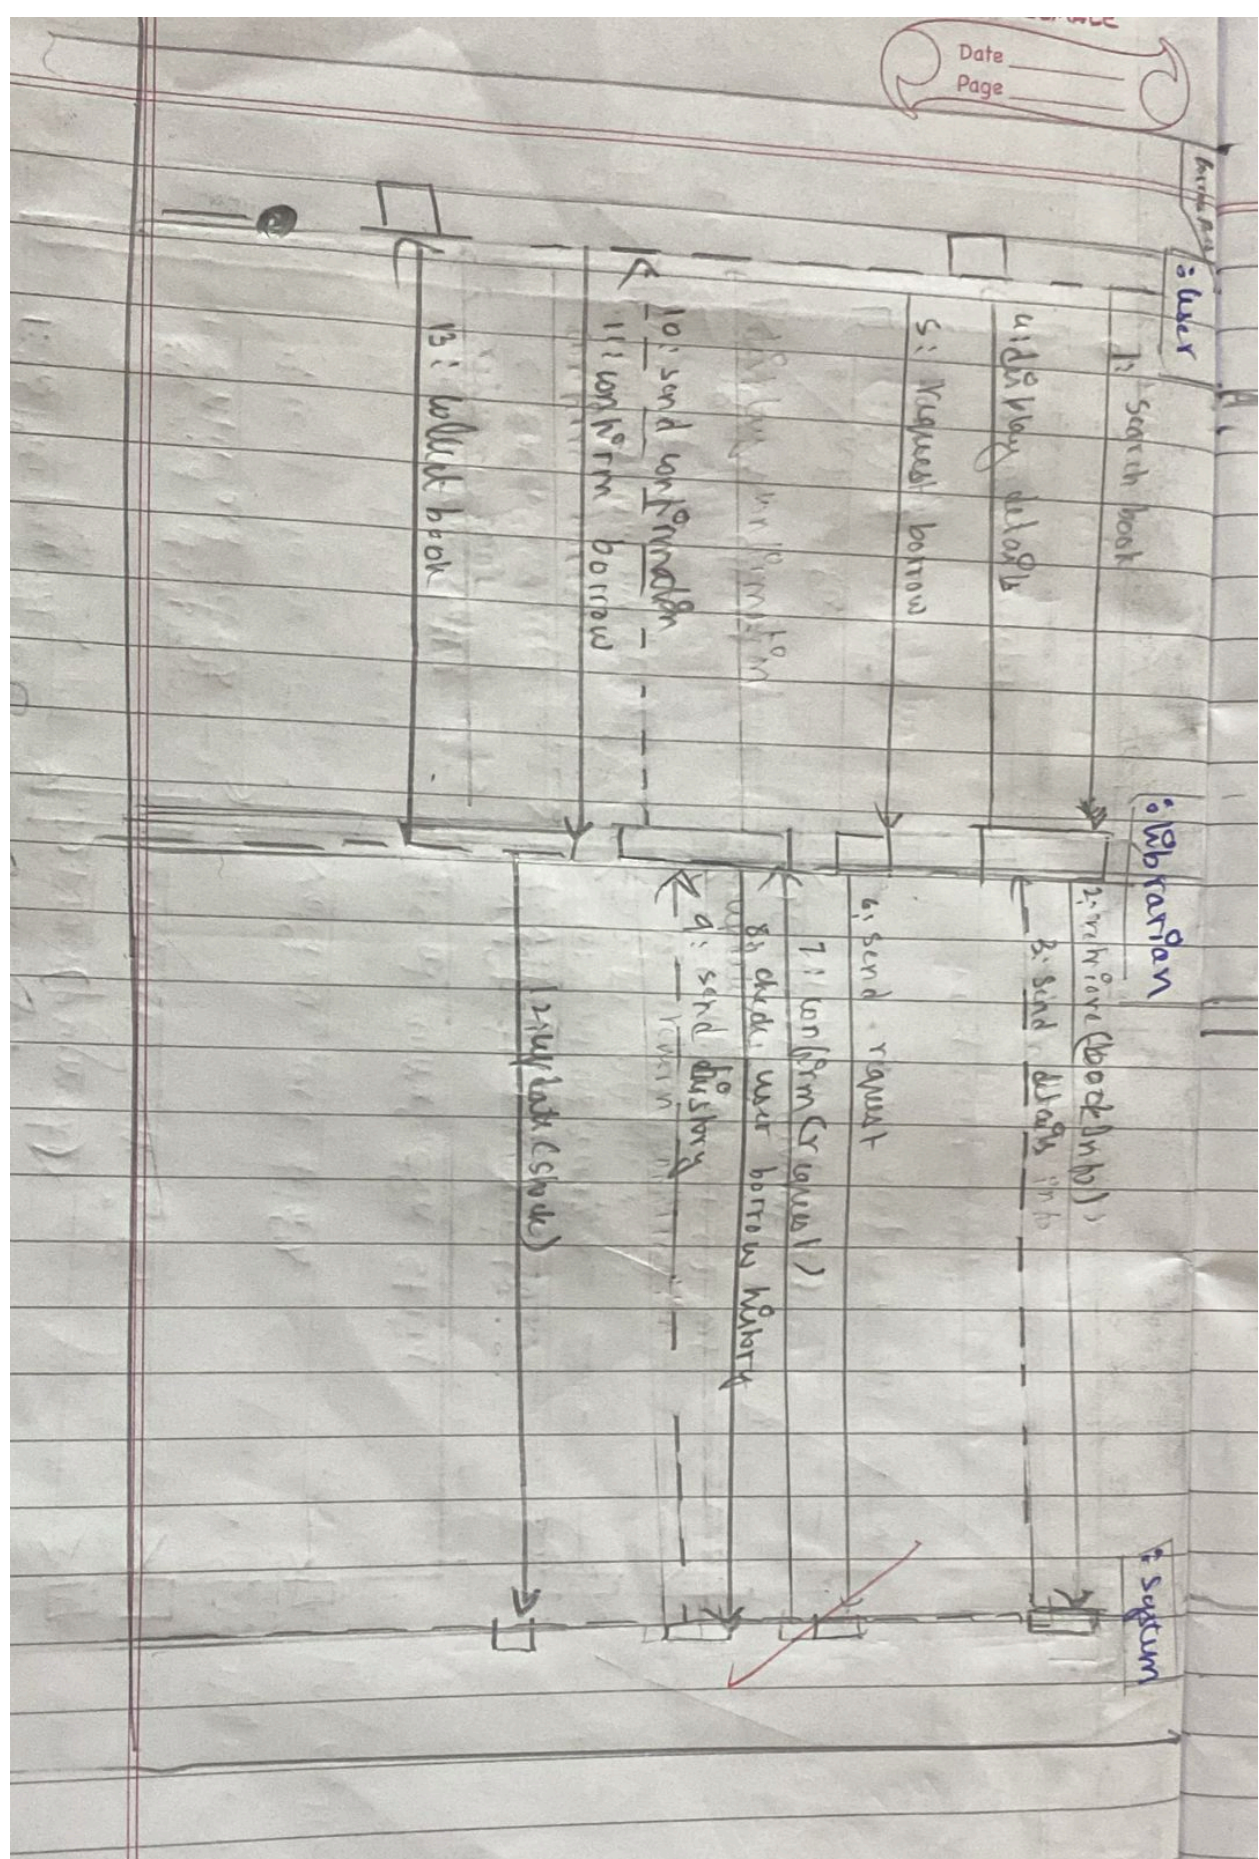 Date
Page
:User
:librarian
:system
1: search book
2: retrieve(bookInfo)
3: send details info
4: display details
5: request borrow
6: send request
7: confirm(request)
8: check user borrow history
9: send history
10: send confirmation
11: confirm borrow
12: update(stock)
13: collect book